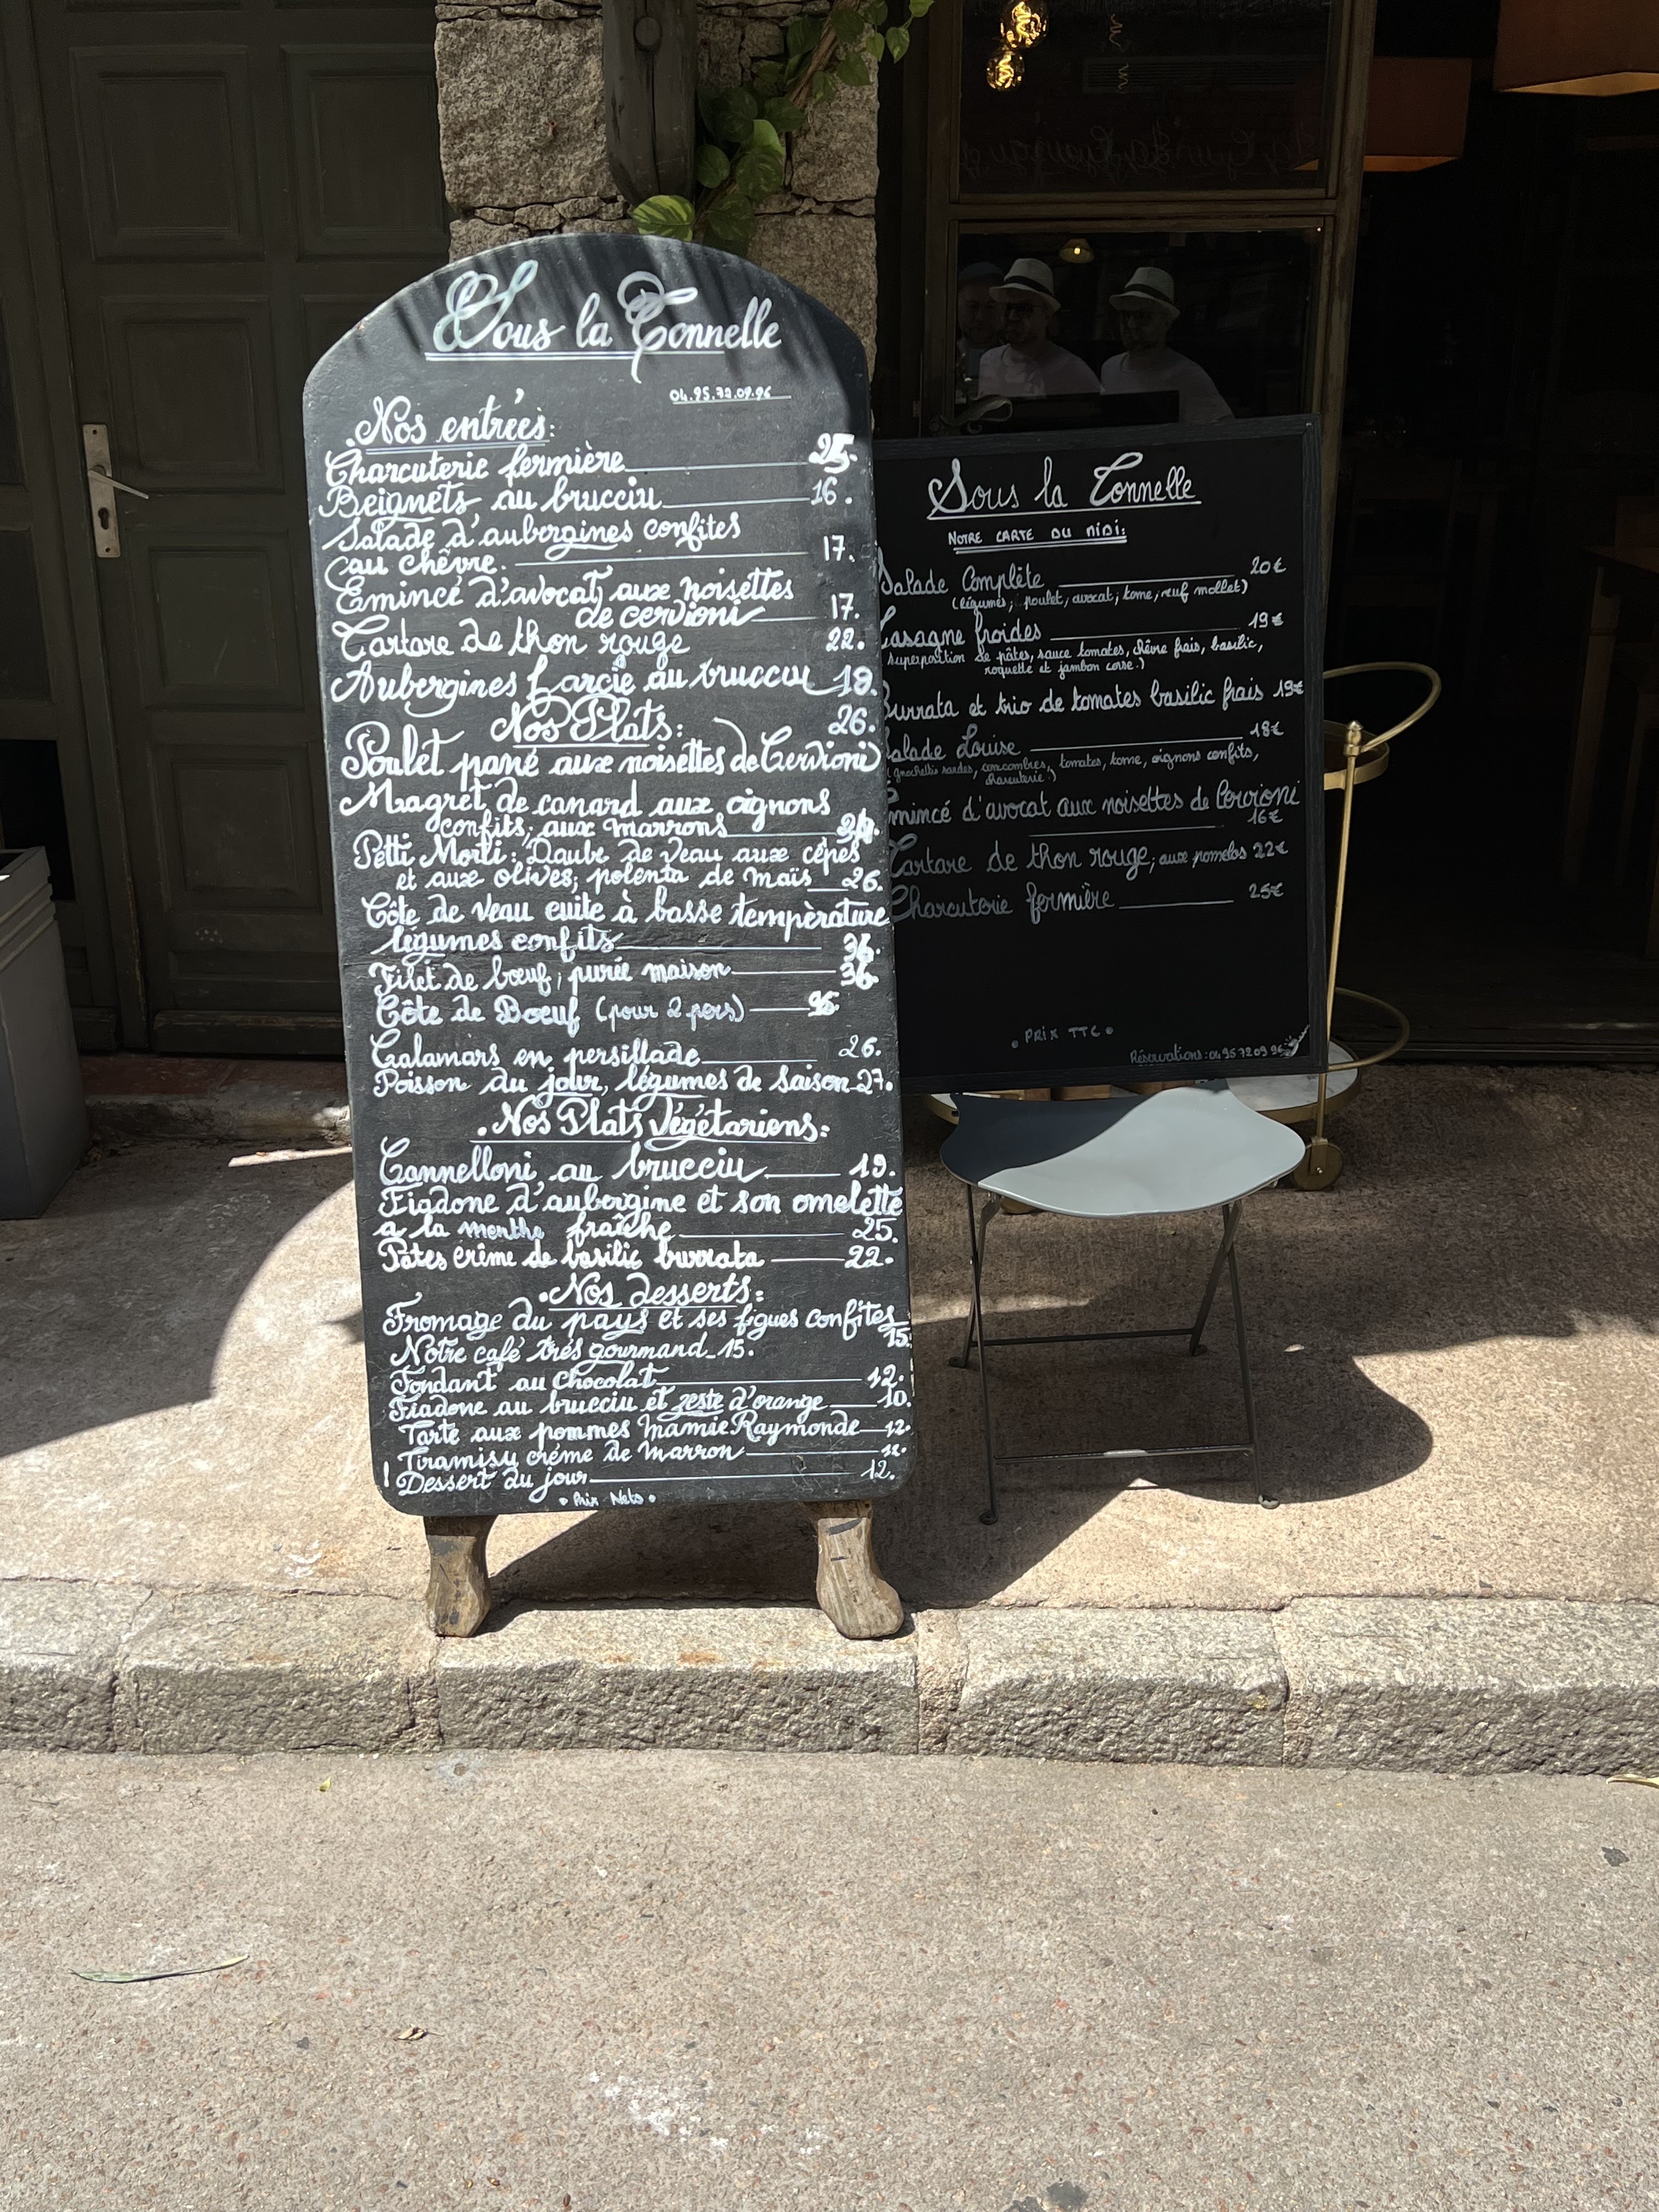 Sous la Tonnelle
04.95.72.09.96
Nos entrées:
Charcuterie fermière 25.
Beignets au brucciu 16.
Salade d'aubergines confites
au chêvre. 17.
Emincé d'avocat aux noisettes
de cervioni 17.
Tartare de thon rouge 22.
Aubergines farcie au brucciu 18.
Nos Plats: 26.
Poulet pané aux noisettes de Cervioni
Magret de canard aux oignons
confits, aux marrons
Petti Morti: Daube de veau aux cèpes
et aux olives, polenta de maïs 26.
Côte de veau cuite à basse tempèrature
légumes confits 36.
Filet de bœuf, purée maison 36.
Côte de Boeuf (pour 2 pers) 95.
Calamars en persillade 26.
Poisson du jour, légumes de saison 27.
. Nos Plats Végétariens:
Cannelloni au brucciu 19.
Fiadone d'aubergine et son omelette
a la menthe fraîche 25.
Pâtes crème de basilic burrata 22.
. Nos desserts:
Fromage du pays et ses figues confites
15.
Notre café très gourmand 15.
Fondant au chocolat 12.
Fiadone au brucciu et zeste d'orange 10.
Tarte aux pommes Mamie Raymonde 12.
Tiramisu créme de marron 12.
! Dessert du jour 12.
• Prix Nets •
Sous la Tonnelle
NOTRE CARTE DU MIDI:
Salade Complète 20€
(légumes, poulet, avocat, tome, œuf mollet)
Lasagne froides 19€
superposition de pâtes, sauce tomates, chèvre frais, basilic,
roquette et jambon corse.)
Burrata et trio de tomates basilic frais 19€
Salade Louise 18€
sardes, concombres, tomates, tome, oignons confits,
charcuterie)
mincé d'avocat aux noisettes de Cervioni
16€
Tartare de thon rouge, aux pomelos 22€
Charcuterie fermière 25€
• PRIX TTC •
Réservations: 04 95 72 09 96